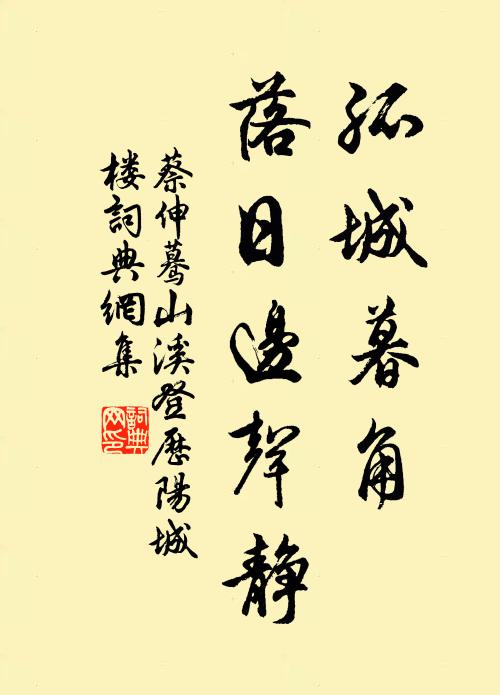 孤城暮角
落日邊聲静
蔡伸蓦山溪登歷陽城
楼詞典網集
詞典
网印